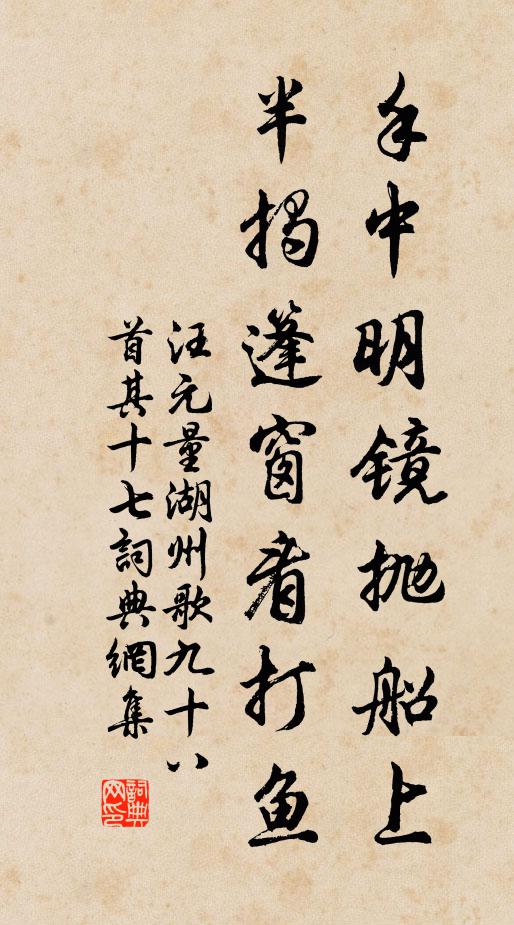 手中明镜抛船上
半揭篷窗看打鱼
汪元量湖州歌九十八
首其十七詞典網集
詞典
网印